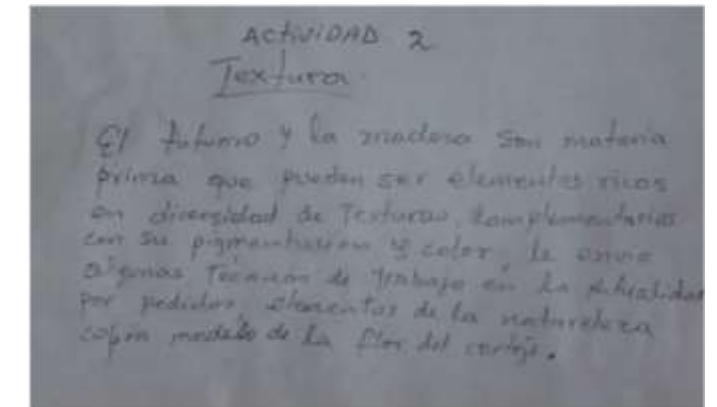 ACTIVIDAD 2
Textura
El totumo y la madera son materia
prima que pueden ser elementos ricos
en diversidad de Texturas, complementarios
con su pigmentación y color, le envio
algunas Técnicas de trabajo en la actualidad
por pedidos, elementos de la naturaleza
copia modelo de la flor del